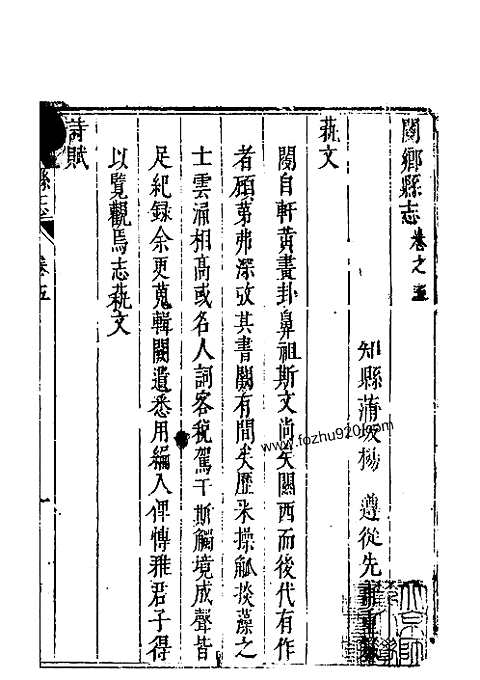 閿鄉縣志卷之五
知縣蒲坂楊 遵從先甫重
藝文
閿自軒黃畫卦鼻祖斯文尚矣關西而後代有作
者顧第弗深攷其書闕有間矣歷來操觚掞藻之
士雲涌相高或名人詞客稅駕于斯觸境成聲皆
足紀錄余更蒐輯闕遺悉用編入俾博雅君子得
以覽觀焉志藝文
詩賦
縣志 卷五 一
www.fozhu920.com